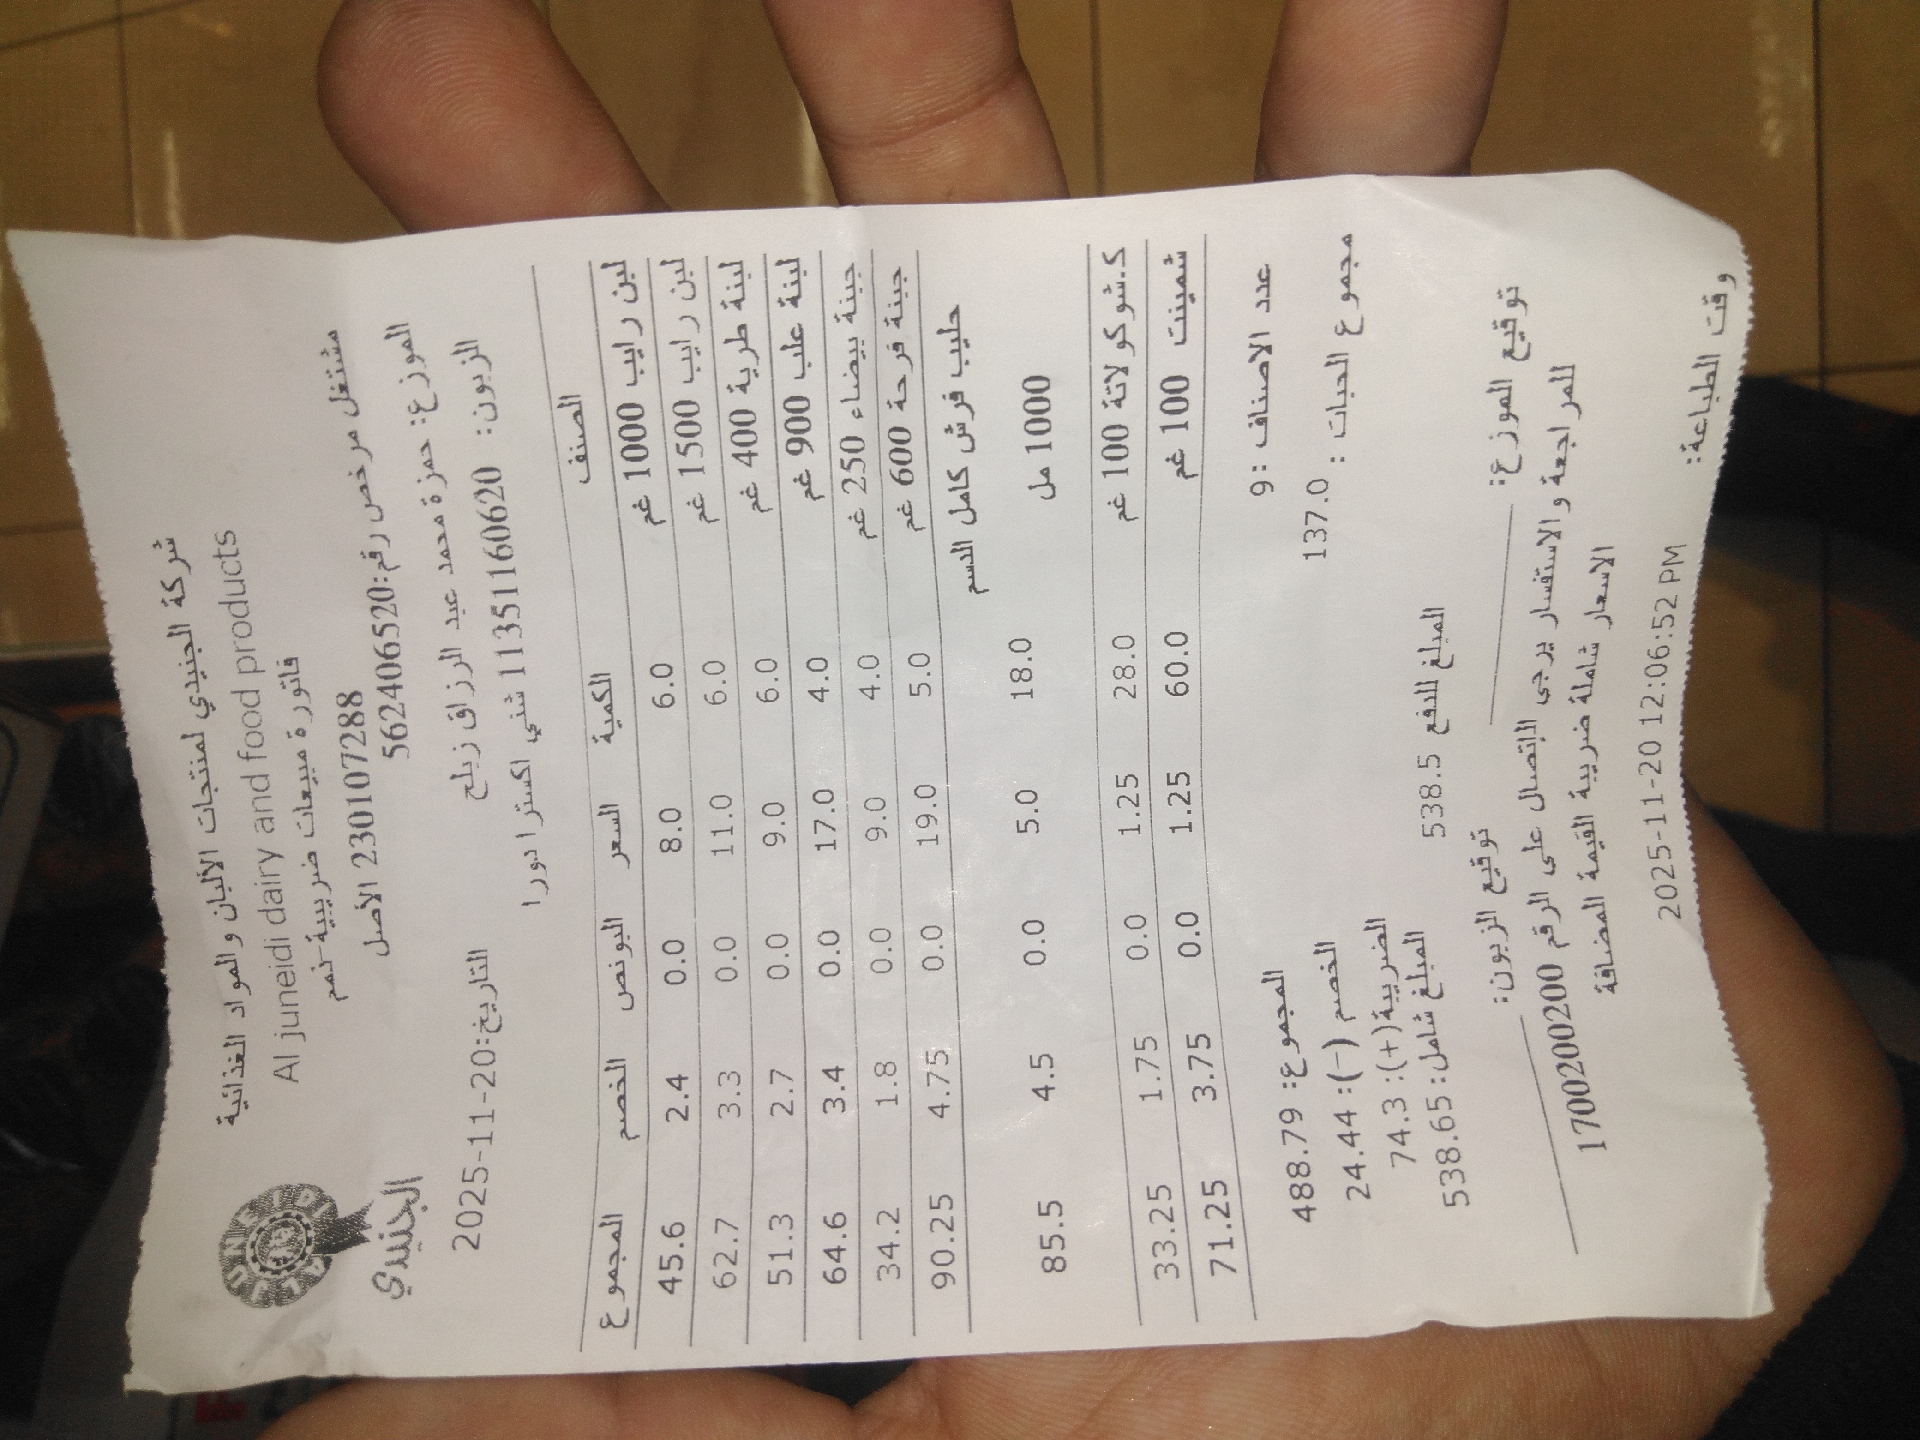 شركة الجنيدي لمنتجات الألبان والمواد الغذائية
Al juneidi dairy and food products
فاتورة مبيعات ضريبية-نمم
AL JUNEIDI
الجنيدي
مشتغل مرخص رقم:562406520
230107288 الأصل
الموزع: حمزة محمد عبد الرزاق زبلح
التاريخ:2025-11-20
الزبون: 11351160620 شني اكسترا دورا
الصنف الكمية السعر البونص الخصم المجموع
لبن رايب 1000 غم 6.0 8.0 0.0 2.4 45.6
لبن رايب 1500 غم 6.0 11.0 0.0 3.3 62.7
لبنة طرية 400 غم 6.0 9.0 0.0 2.7 51.3
لبنة علب 900 غم 4.0 17.0 0.0 3.4 64.6
جبنة بيضاء 250 غم 4.0 9.0 0.0 1.8 34.2
جبنة فرحة 600 غم 5.0 19.0 0.0 4.75 90.25
حليب فرش كامل الدسم
1000 مل 18.0 5.0 0.0 4.5 85.5
ك.شوكولاتة 100 غم 28.0 1.25 0.0 1.75 33.25
شمينت 100 غم 60.0 1.25 0.0 3.75 71.25
عدد الاصناف :9
المجموع: 488.79
مجموع الحبات : 137.0
الخصم (-): 24.44
الضريبة(+): 74.3
المبلغ شامل: 538.65
المبلغ للدفع 538.5
توقيع الموزع:
توقيع الزبون:
للمراجعة والاستفسار يرجى الإتصال على الرقم 1700200200
الاسعار شاملة ضريبة القيمة المضافة
وقت الطباعة:
2025-11-20 12:06:52 PM